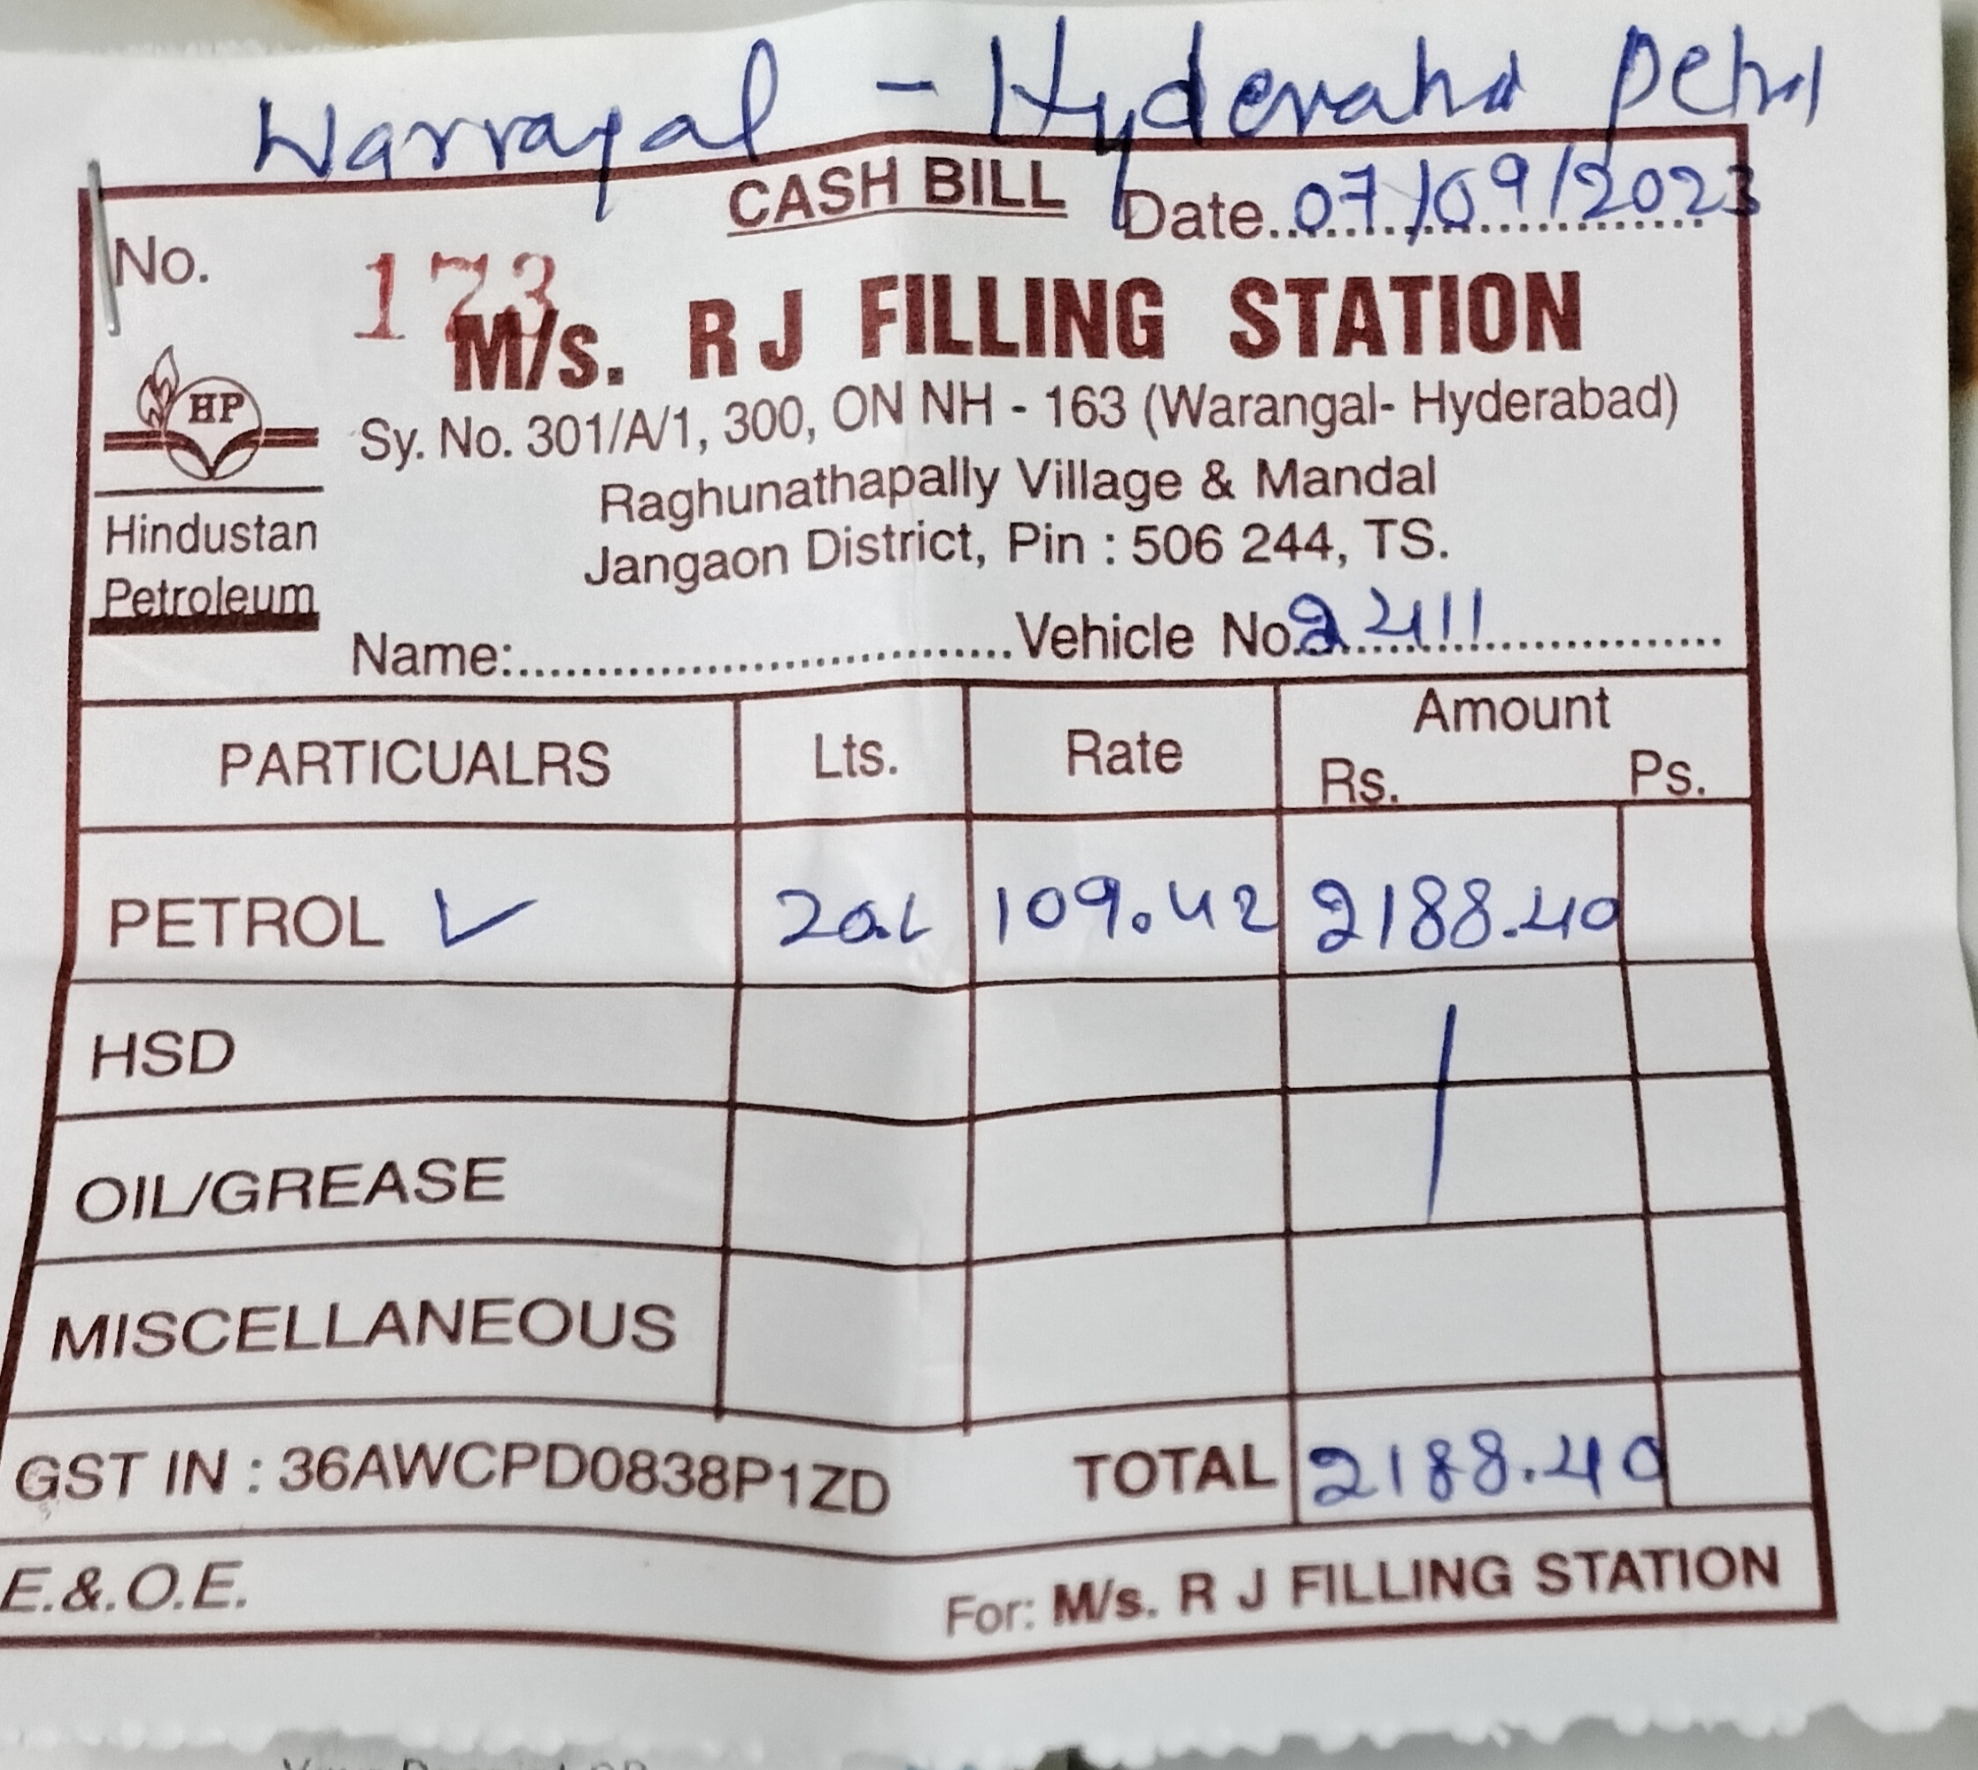 Warrayal - Hyderabad petrol
CASH BILL
Date..07/09/2023
No. 173
M/s. R J FILLING STATION
HP
Hindustan
Petroleum
Sy. No. 301/A/1, 300, ON NH - 163 (Warangal- Hyderabad)
Raghunathapally Village & Mandal
Jangaon District, Pin : 506 244, TS.
Name:........ Vehicle No. 2411
PARTICUALRS Lts. Rate Amount
Rs. Ps.
PETROL ✓ 20.L 109.42 2188.40
HSD
OIL/GREASE
MISCELLANEOUS
GST IN : 36AWCPD0838P1ZD TOTAL 2188.40
E.&.O.E.
For: M/s. R J FILLING STATION